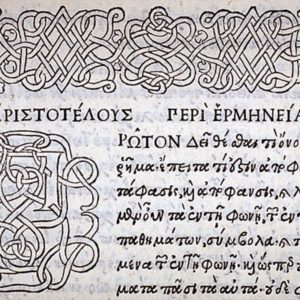 ΑΡΙΣΤΟΤΕΛΟΥΣ ΠΕΡΙ ἙΡΜΗΝΕΙΑ
ΡΩ͂ΤΟΝ Δεῖ θέσθαι τί ὄνο
ῥῆμα. ἔπειτα τί ἐστιν ἀπόφ
τάφασις, καὶ ἀπόφανσις, καὶ
μὲν οὖν τὰ ἐν τῇ φωνῇ, τ
παθημάτων, σύμβολα. καὶ τ
μενα τῶν ἐν τῇ φωνῇ. καὶ ὥσπερ
ματα πᾶσι τὰ αὐτὰ. οὐδὲ